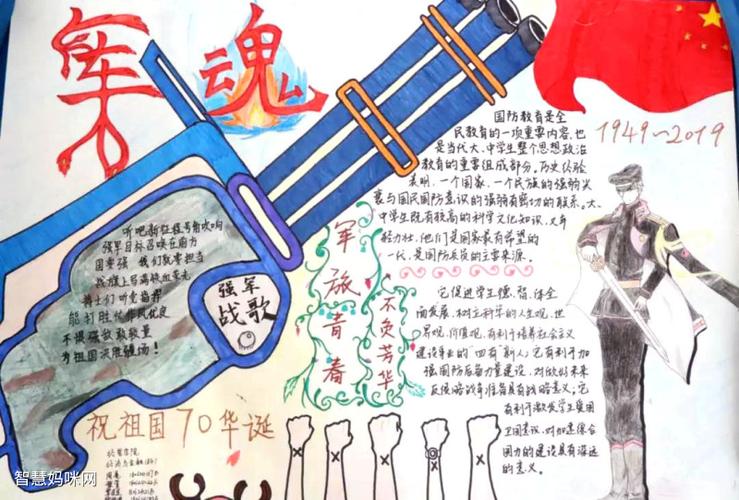 军魂
1949~2019
国防教育是全
民教育的一项重要内容,也
是当代大、中学生整个思想政治
教育的重要组成部分。历史经验
表明,一个国家、一个民族的强弱兴
衰与国民国防意识的强弱有密切的联系。大、
中学生既有较高的科学文化知识,又年
轻力壮,他们是国家最有希望的
一代,是国防兵役的主要来源。
它促进学生德、智、体全
面发展,树立科学的人生观、世
界观、价值观,有利于培养社会主义
建设事业的"四有"新人;它有利于加
强国防后备力量建设,对做好未来
反侵略战争准备具有战略意义;它
有利于激发学生爱国
卫国意识,对加速综合
国力的建设具有深远
的意义。
听吧新征程号角吹响
强军目标召唤在前方
国要强 我们就要担当
战旗上写满铁血荣光
将士们听党指挥
能打胜仗作风优良
不惧强敌敢较量
为祖国决胜疆场!
强军
战歌
军旅青春
不负芳华
祝祖国70华诞
智慧妈咪网